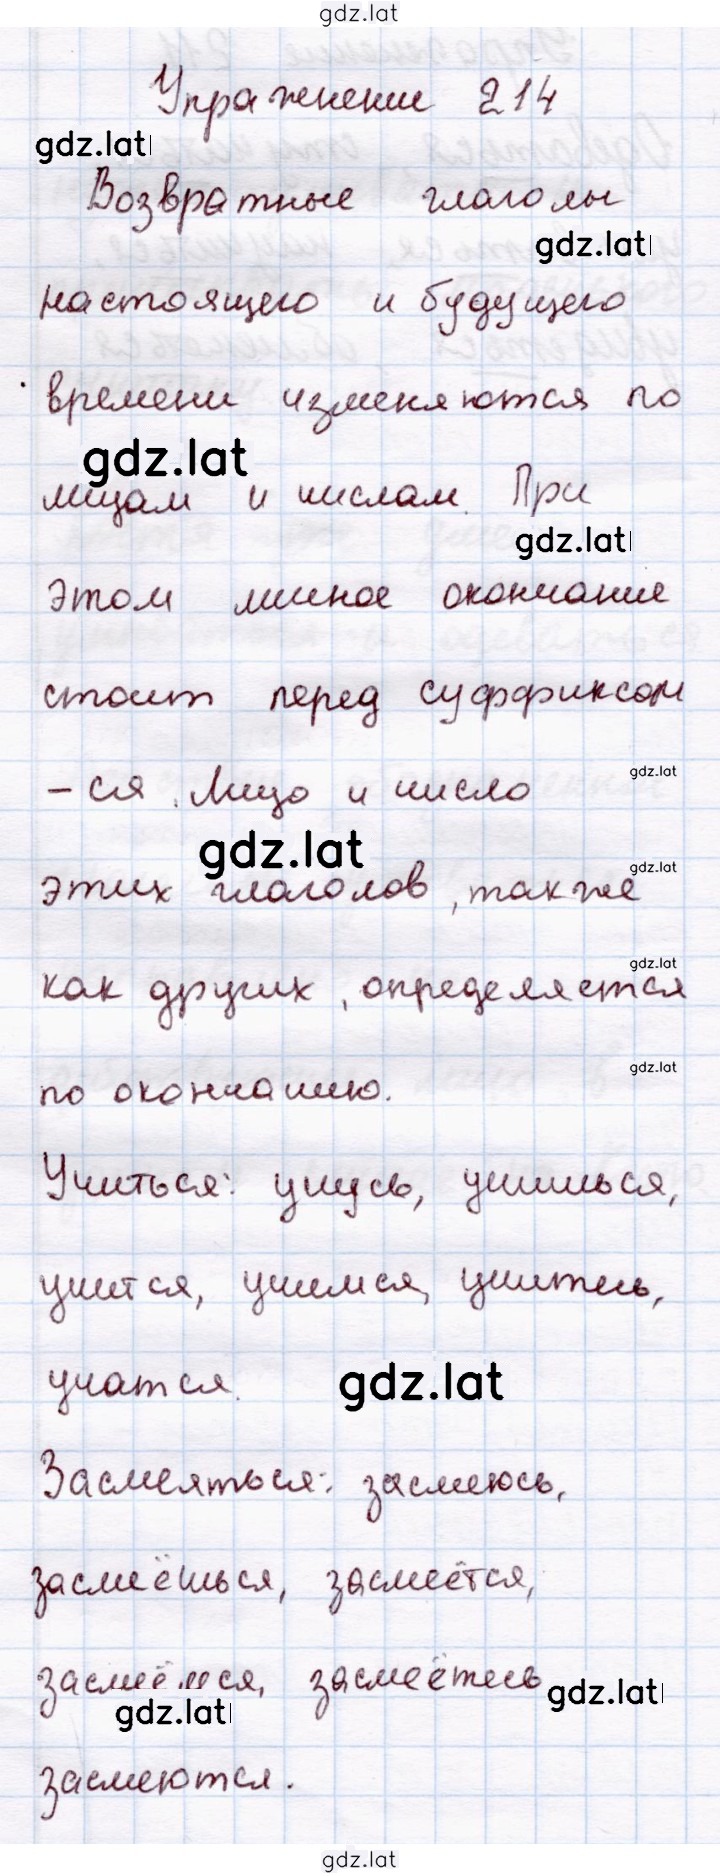 gdz.lat
Упражнение 214
gdz.lat
Возвратные глаголы
gdz.lat
настоящего и будущего
времени изменяются по
gdz.lat
лицам и числам. При
gdz.lat
этом личное окончание
стоит перед суффиксом
-ся. Лицо и число
gdz.lat
gdz.lat
gdz.lat
этих глаголов, также
как других, определяется
gdz.lat
по окончанию.
gdz.lat
Учиться: учусь, учишься,
учится, учимся, учитесь,
учатся.
gdz.lat
Засмеяться: засмеюсь,
засмеёшься, засмеётся,
засмеёмся, засмеётесь
gdz.lat
gdz.lat
засмеются.
gdz.lat